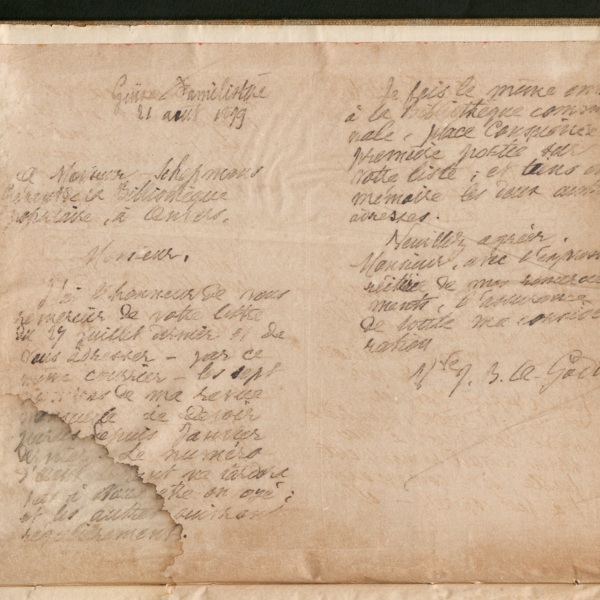 Guise Familistère
21 août 1899
A Monsieur Schepmans
Bibliothèque
populaire, à Anvers.
Monsieur,
J'ai l'honneur de vous
remercier de votre lettre
du 27 juillet dernier et de
vous adresser - par ce
même courrier - les sept
numéros de ma revue
mensuelle Le Devoir
parus depuis Janvier
dernier. Le numéro
d'août
et les autres suivront
régulièrement.
Je fais le même
à la Bibliothèque commu
nale, place Conscience
première portée sur
votre liste ; et tiens en
mémoire les deux autres
adresses.
Veuillez agréer,
Monsieur, avec l'expres
réitérée de mes remercie
ments, l'assurance
de toute ma considé
ration
Vve J. B. A. God